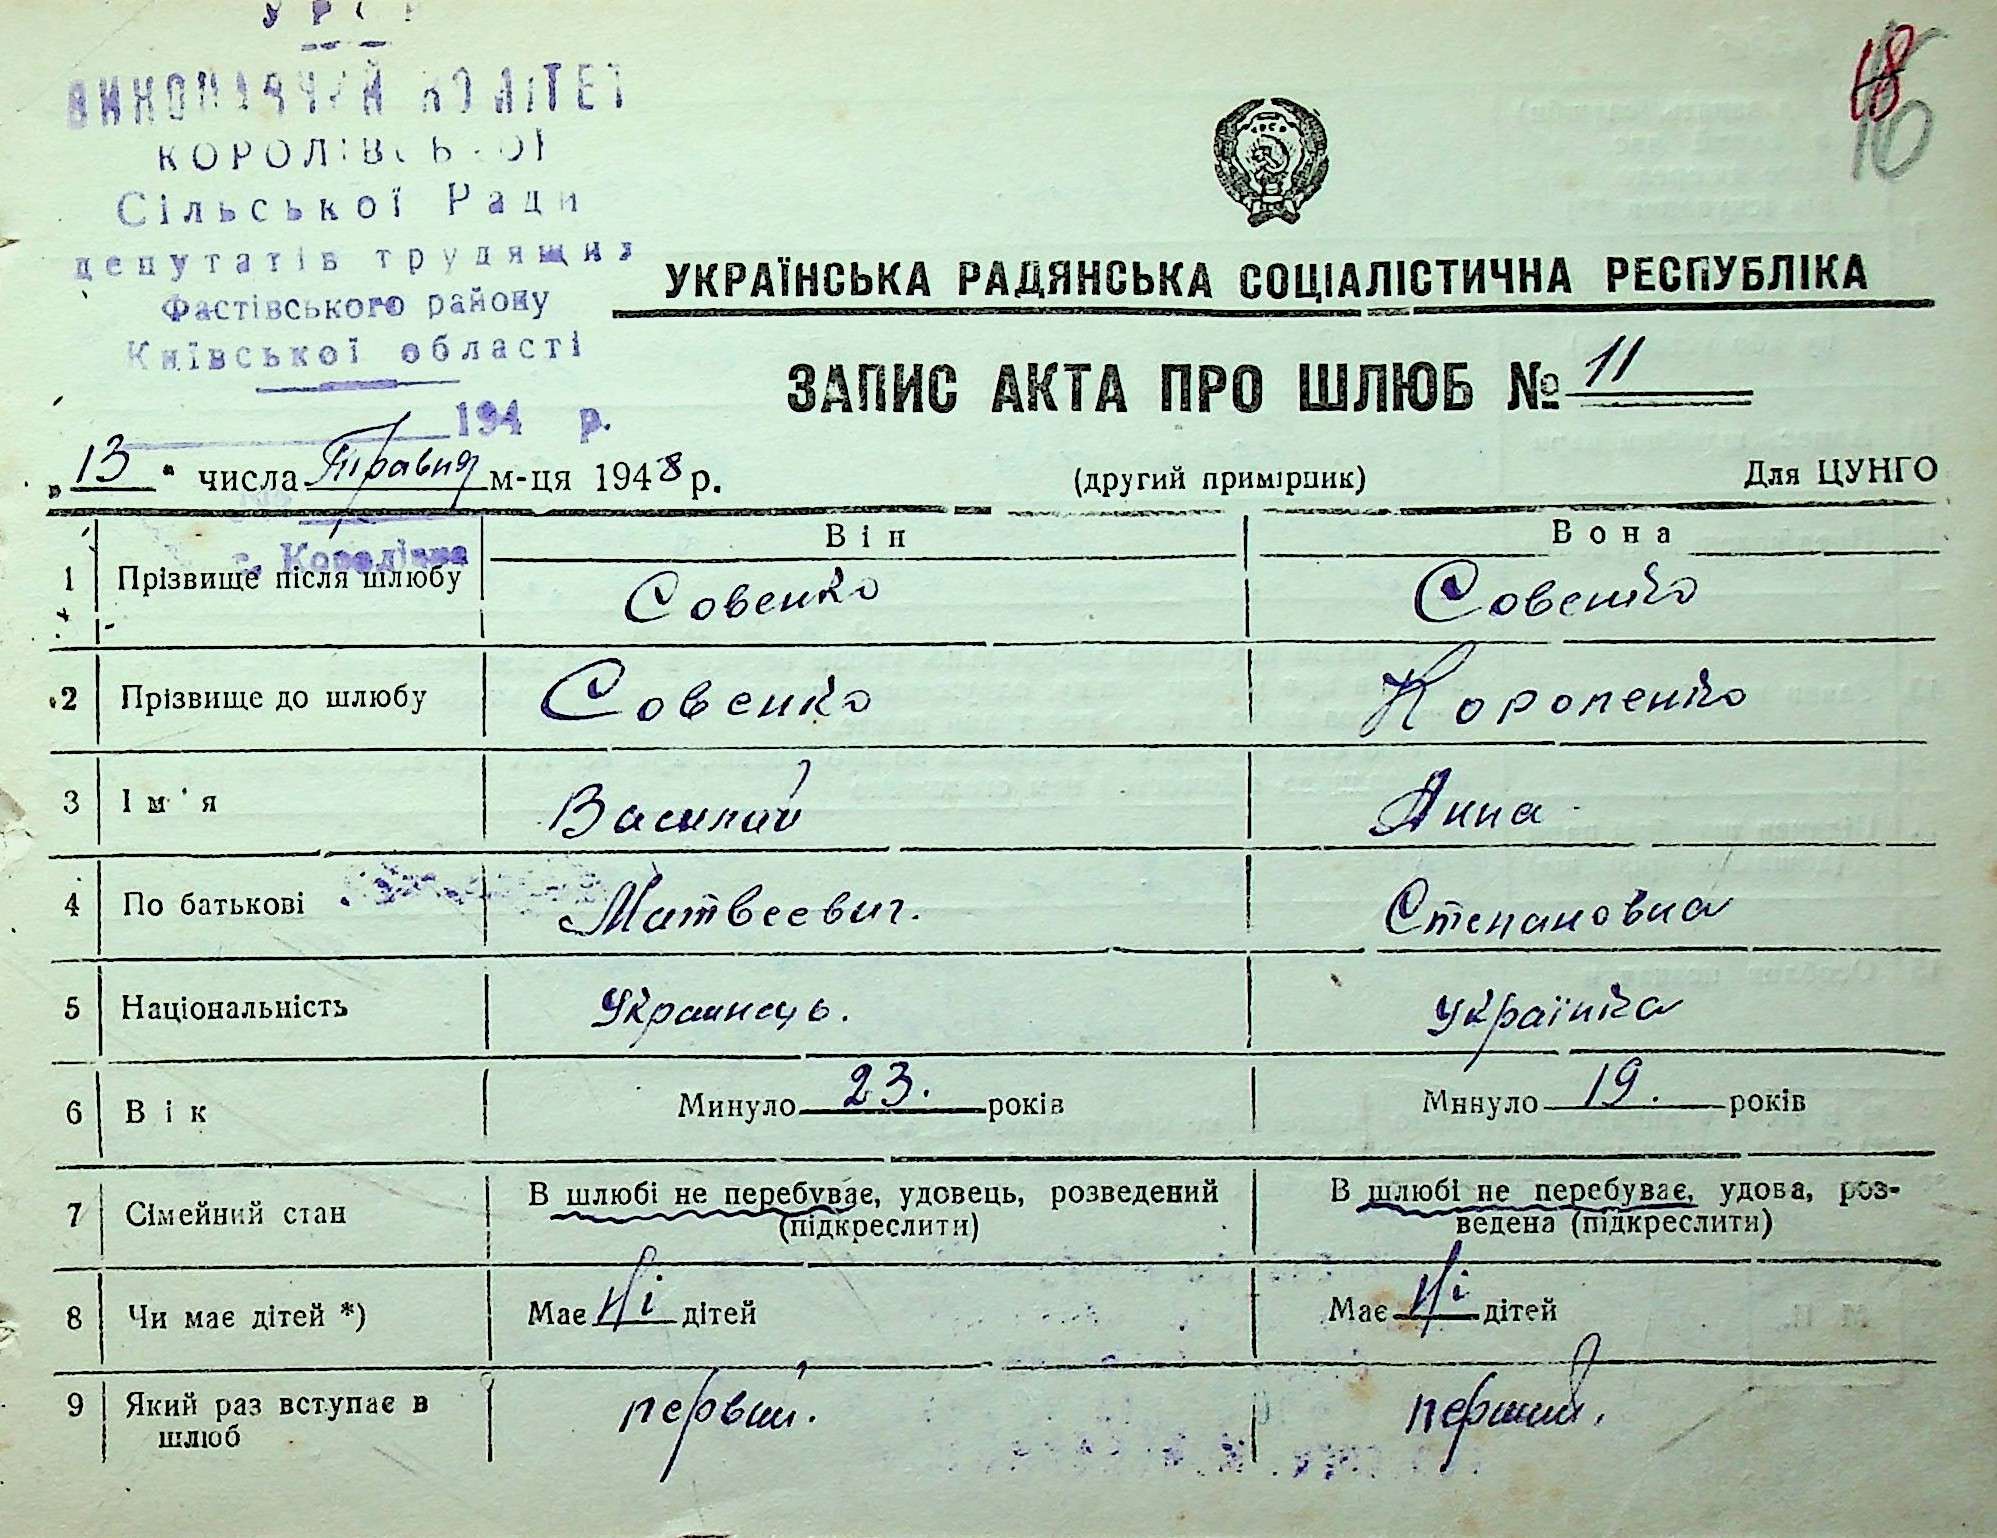 УРСР
ВИКОНАВЧИЙ КОМІТЕТ
КОРОЛІВСЬКОЇ
Сільської Ради
депутатів трудящих
Фастівського району
Київської області
194 р.
18
16
УКРАЇНСЬКА РАДЯНСЬКА СОЦІАЛІСТИЧНА РЕСПУБЛІКА
ЗАПИС АКТА ПРО ШЛЮБ № 11
„13“ числа Травня м-ця 1948 р. (другий примірник) Для ЦУНГО
с. Королівка
Він Вона
1 Прізвище після шлюбу Совенко Совенко
2 Прізвище до шлюбу Совенко Коропенко
3 Ім'я Василий Анна
4 По батькові Матвеевич. Степановна
5 Національність Украинець. Українка
6 Вік Минуло 23. років Минуло 19. років
7 Сімейний стан В шлюбі не перебуває, удовець, розведений (підкреслити) В шлюбі не перебуває, удова, роз-
ведена (підкреслити)
8 Чи має дітей *) Має Ні дітей Має Ні дітей
9 Який раз вступає в первий. перший.
шлюб